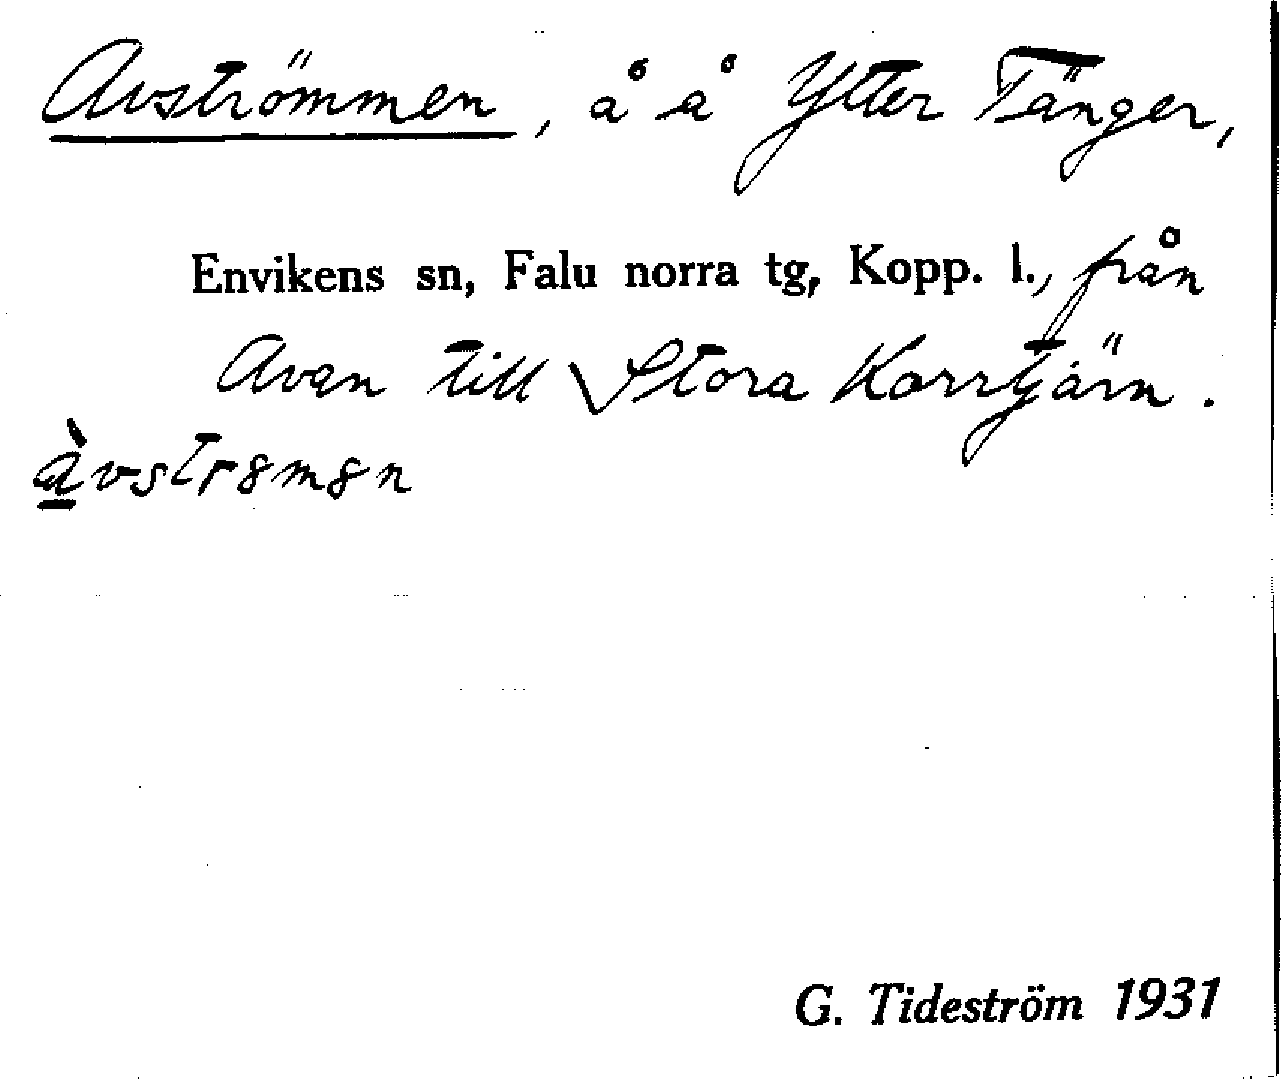 Avströmmen, å å Ytter Tänger,
Envikens sn, Falu norra tg, Kopp. l., från
Avan till \Stora Korrtjärn.
àvstrɞmɞn
G. Tideström 1931